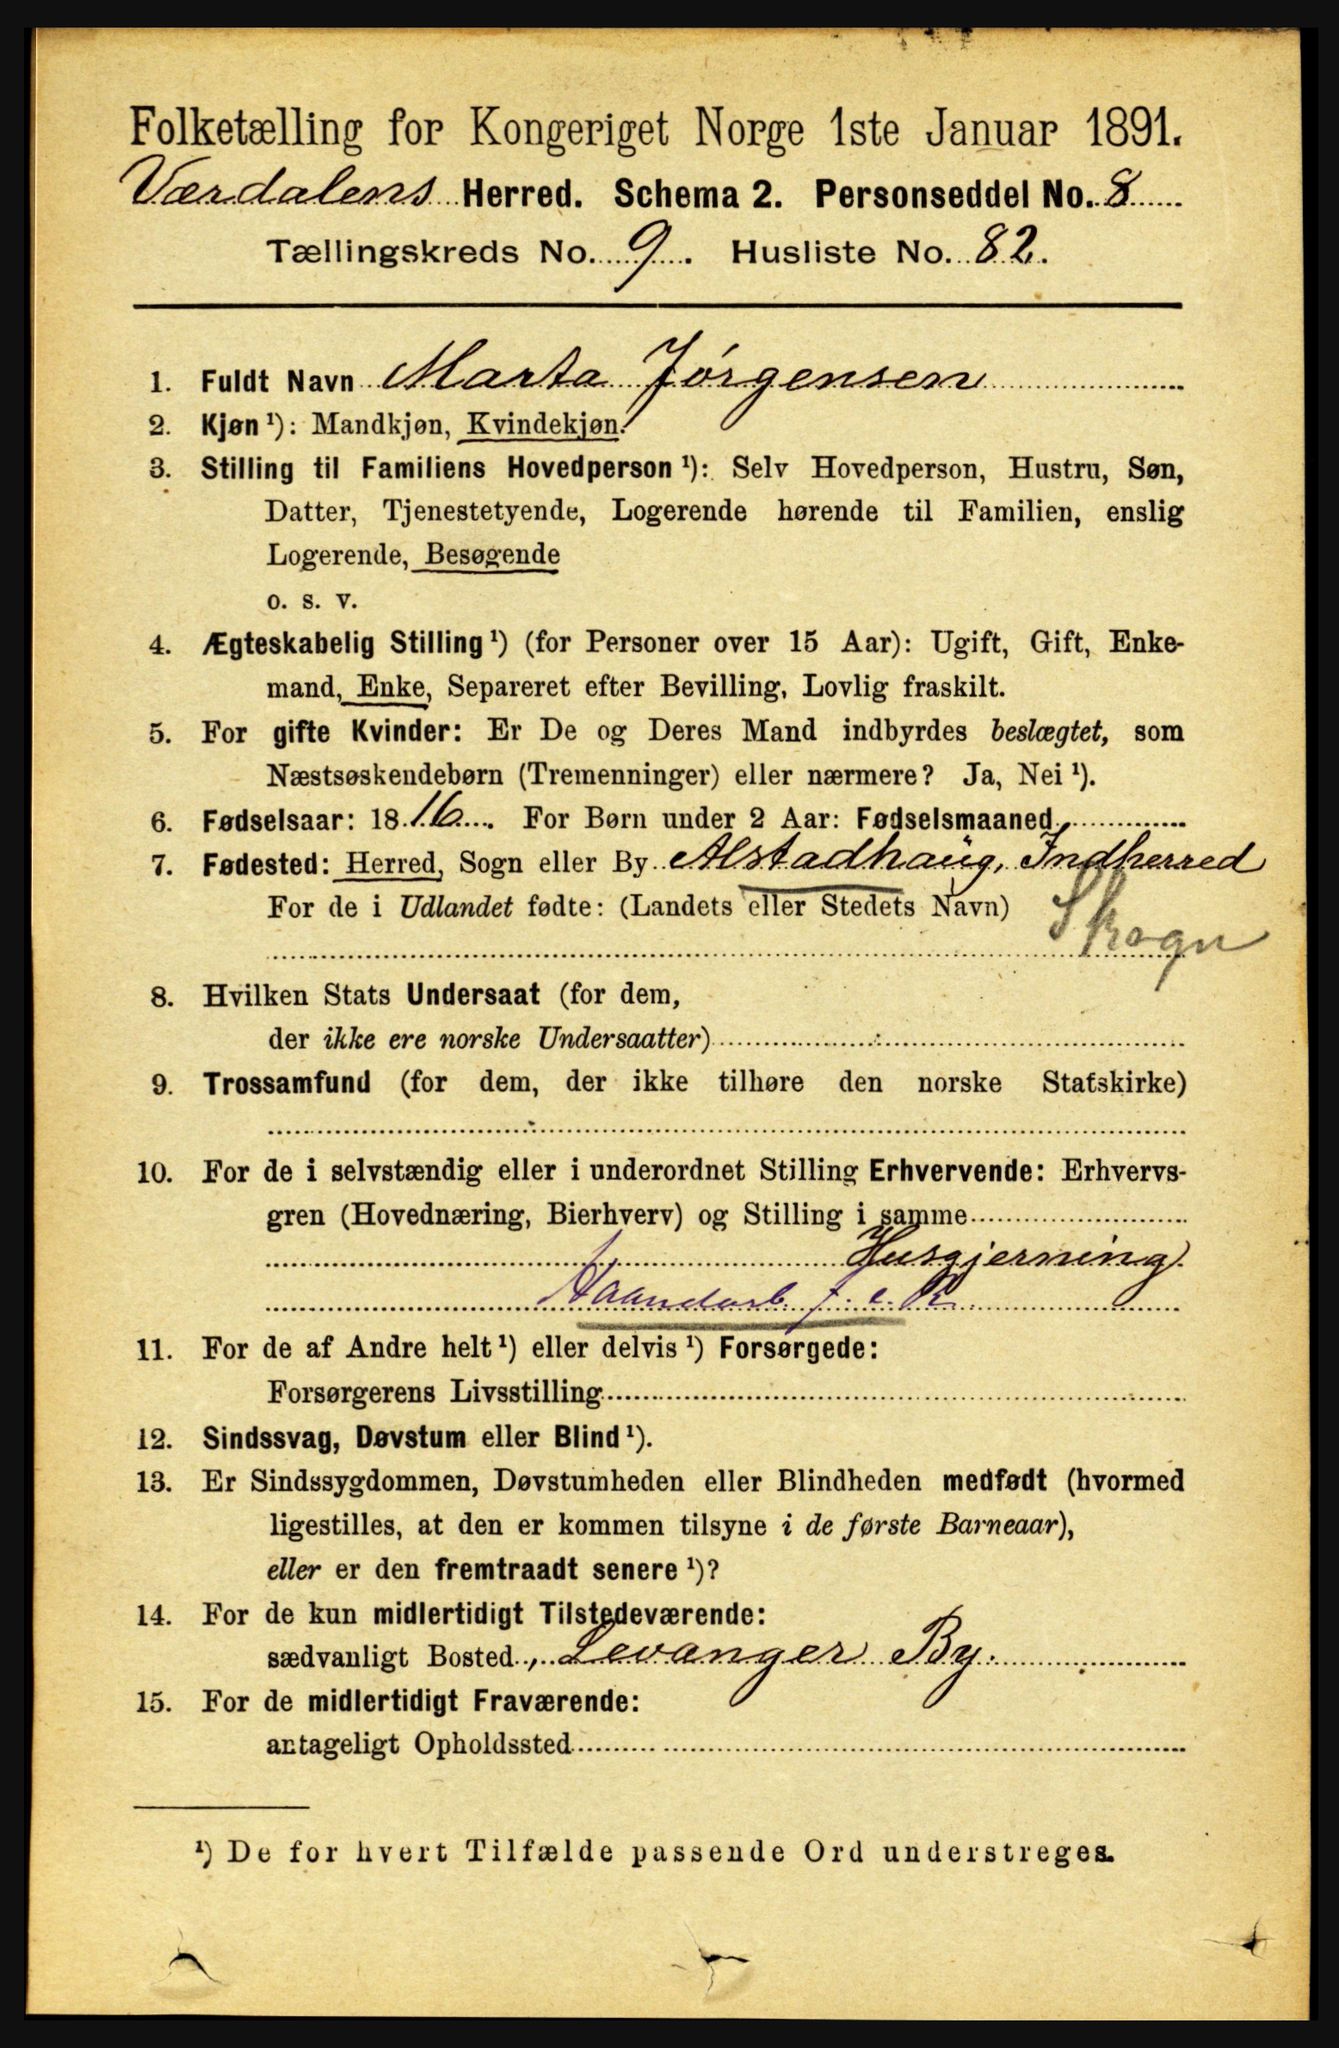 Folketælling for Kongeriget Norge 1ste Januar 1891.
Værdalens Herred. Schema 2. Personseddel No. 8
Tællingskreds No. 9. Husliste No. 82.
1. Fuldt Navn Marta Jørgensen
2. Kjøn ¹): Mandkjøn, Kvindekjøn.
3. Stilling til Familiens Hovedperson ¹): Selv Hovedperson, Hustru, Søn,
Datter, Tjenestetyende, Logerende hørende til Familien, enslig
Logerende, Besøgende
o. s. v.
4. Ægteskabelig Stilling ¹) (for Personer over 15 Aar): Ugift, Gift, Enke-
mand, Enke, Separeret efter Bevilling, Lovlig fraskilt.
5. For gifte Kvinder: Er De og Deres Mand indbyrdes beslægtet, som
Næstsøskendebørn (Tremenninger) eller nærmere? Ja, Nei ¹).
6. Fødselsaar: 1816. For Børn under 2 Aar: Fødselsmaaned
7. Fødested: Herred, Sogn eller By Alstadhaug, Indherred
For de i Udlandet fødte: (Landets eller Stedets Navn)
Skogn
8. Hvilken Stats Undersaat (for dem,
der ikke ere norske Undersaatter)
9. Trossamfund (for dem, der ikke tilhøre den norske Statskirke)
10. For de i selvstændig eller i underordnet Stilling Erhvervende: Erhvervs-
gren (Hovednæring, Bierhverv) og Stilling i samme
Husgjerning
Haandarb. f. e. R.
11. For de af Andre helt ¹) eller delvis ¹) Forsørgede:
Forsørgerens Livsstilling
12. Sindssvag, Døvstum eller Blind ¹).
13. Er Sindssygdommen, Døvstumheden eller Blindheden medfødt (hvormed
ligestilles, at den er kommen tilsyne i de første Barneaar),
eller er den fremtraadt senere ¹)?
14. For de kun midlertidigt Tilstedeværende:
sædvanligt Bosted, Levanger By.
15. For de midlertidigt Fraværende:
antageligt Opholdssted
¹) De for hvert Tilfælde passende Ord understreges.